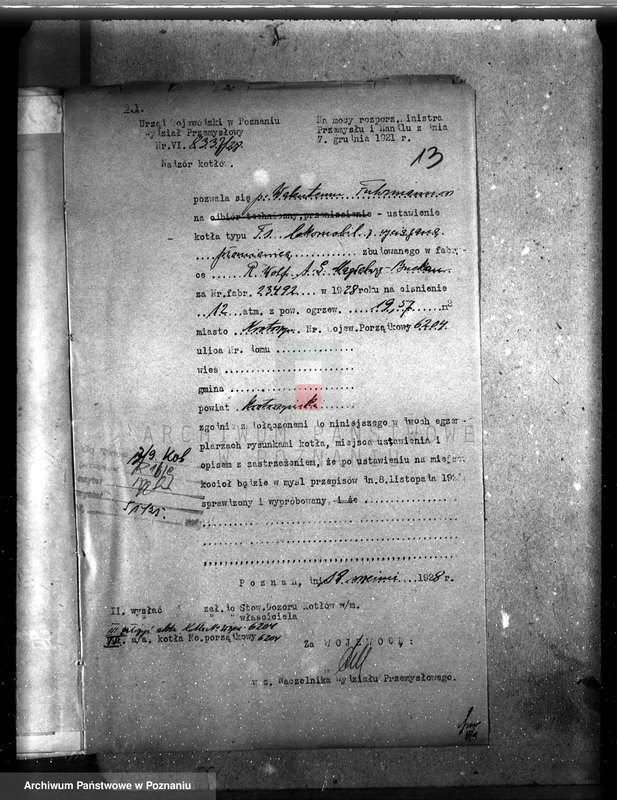 Urząd Wojewódzki w Poznaniu
Wydział Przemysłowy
Nr.VI. 8337/28
Nadzór kotłów.
Na mocy rozporz. Ministra
Przemysłu i Handlu z dnia
7. grudnia 1921 r.
13
pozwala się p. Walentemu Fuhrmannowi
na odbiór techniczny, przeniesienie - ustawienie
kotła typu lokomobil z
płomienicą zbudowanego w fabry-
ce R. Wolf A.G. Magdeburg-Buckau
za Nr.fabr. 23492 w 1928 roku na ciśnienie
12 atm. z pow. ogrzew. 19,57 m2
miasto Krotoszyn Nr. Wojew.Porządkowy 6204
ulica Nr. domu
wieś
gmina
powiat krotoszyński
zgodnie z dołączonemi do niniejszego w dwóch egzem-
plarzach rysunkami kotła, miejsca ustawienia i
opisem z zastrzeżeniem, że po ustawieniu na miejscu
kocioł będzie w myśl przepisów dn.8.listopada 192
sprawdzony i wypróbowany, i że
Poznań, dnia 18 1928 r.
II. wysłać zał. do Stow.Dozoru Kotłów w/m.
" " właściciela
III
IV. a/a. kotła No.porządkowy 6204
Za WOJEWODĘ:
w z. Naczelnika Wydziału Przemysłowego.
ARCHIWUM PAŃSTWOWE
POZNAŃ
Archiwum Państwowe w Poznaniu